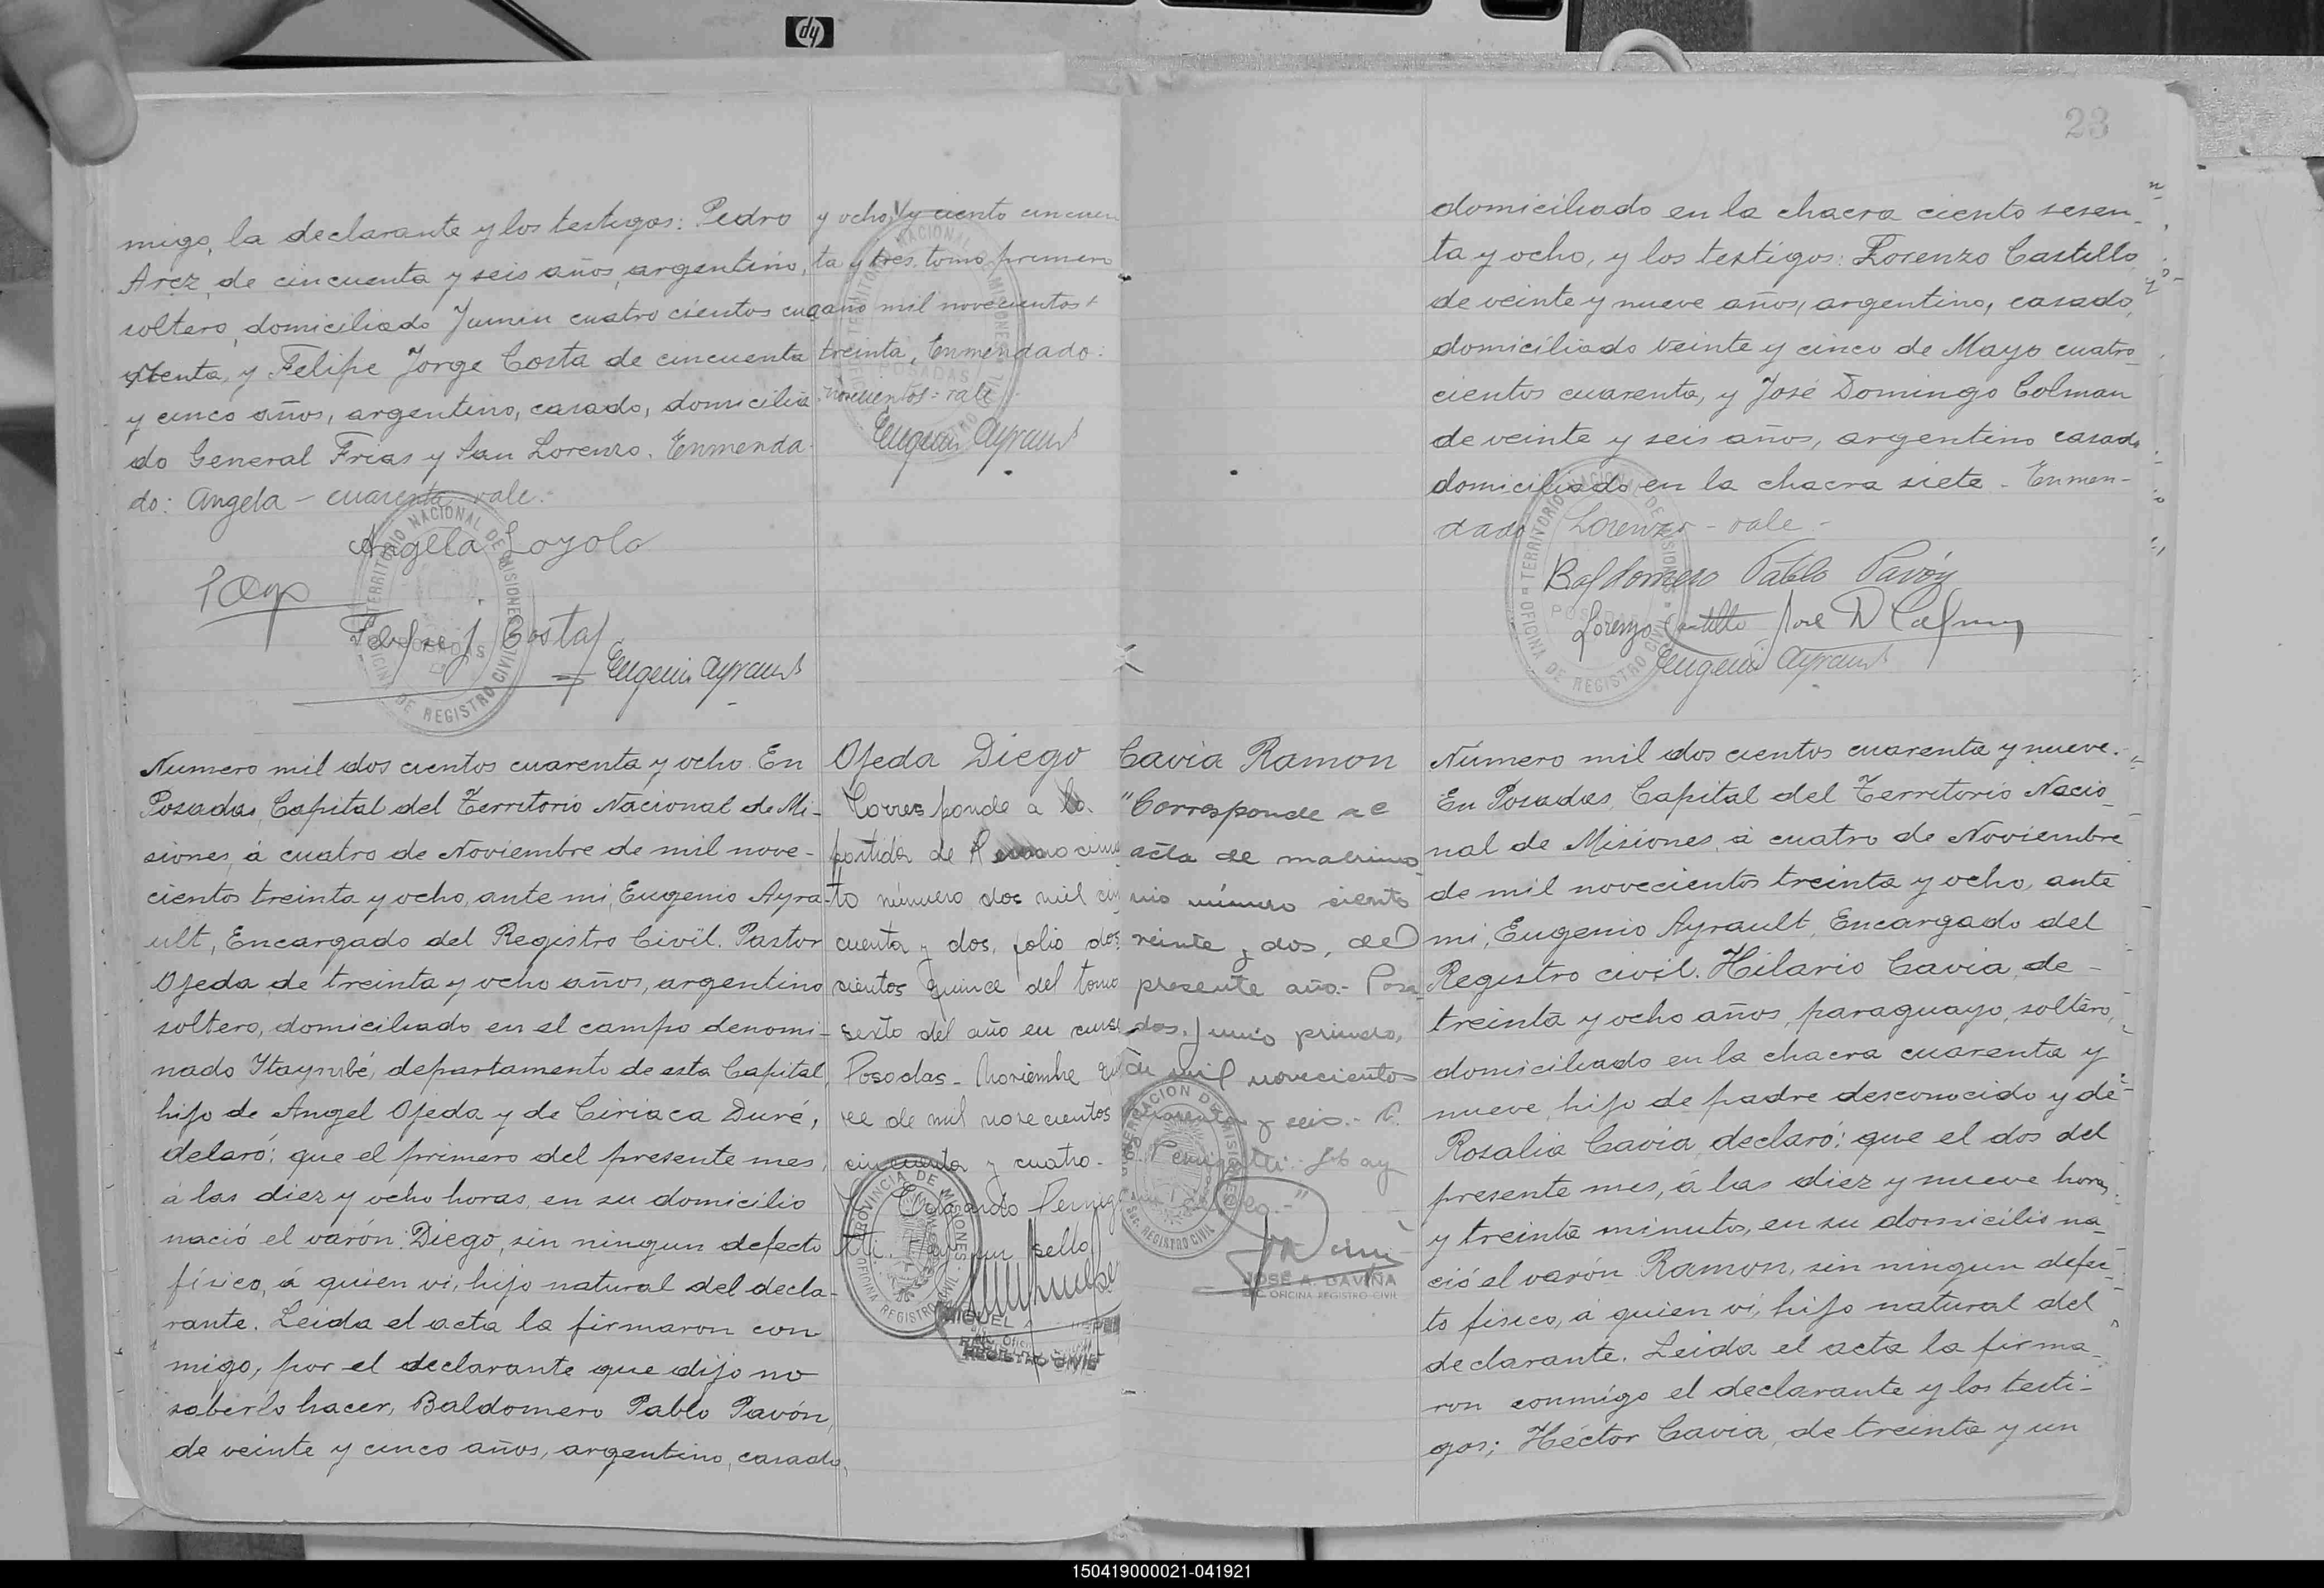 23
migo, la declarante y los testigos: Pedro
Arez, de cincuenta y seis años, argentino,
soltero, domiciliado Junin cuatro cientos cua
renta, y Felipe Jorge Costa de cincuenta
y cinco años, argentino, casado, domicilia
do General Frias y San Lorenzo. Enmenda-
do: Angela - cuarenta - vale.-
Angela Loyola
Felipe J. Costa
Eugenio Ayrault
TERRITORIO NACIONAL DE MISIONES
POSADAS
OFICINA DE REGISTRO CIVIL
y ocho y ciento cincuen
ta y tres, tomo primero
año mil novecientos
treinta, Enmendado:
novecientos = vale
Eugenio Ayrault
Numero mil dos cientos cuarenta y ocho. En
Posadas, Capital del Territorio Nacional de Mi-
siones, á cuatro de Noviembre de mil nove-
cientos treinta y ocho, ante mi, Eugenio Ayra-
ult, Encargado del Registro Civil. Pastor
Ojeda, de treinta y ocho años, argentino
soltero, domiciliado en el campo denomi-
nado Itaymbé, departamento de esta Capital,
hijo de Angel Ojeda y de Ciriaca Duré,
delaró: que el primero del presente mes,
á las diez y ocho horas, en su domicilio
nació el varón: Diego, sin ningun defecto
físico, á quien vi, hijo natural del decla-
rante. Leida el acta la firmaron con
migo, por el declarante que dijo no
saberlo hacer, Baldomero Pablo Pavón,
de veinte y cinco años, argentino, casado,
Ojeda Diego
Corresponde a la
partida de
to número dos mil cin
cuenta y dos, folio dos
cientos quince del tomo
sexto del año en curso
Posadas - Noviembre
ce de mil novecientos
cincuenta y cuatro-
sello
PROVINCIA DE MISIONES
OFICINA REGISTRO CIVIL
MIGUEL
REGISTRO CIVIL
Cavia Ramon
"Corresponde al
acta de matrimo
nio número ciento
veinte y dos, del
presente año.- Posa
das, Junio primero,
de mil novecientos
cuarenta y seis.-
hay
sello.-"
REGISTRO CIVIL
JOSE A. GAVIÑA
OFICINA REGISTRO CIVIL
domiciliado en la chacra ciento sesen-
ta y ocho, y los testigos: Lorenzo Castillo,
de veinte y nueve años, argentino, casado,
domiciliado veinte y cinco de Mayo cuatro
cientos cuarenta, y José Domingo Colman
de veinte y seis años, argentino casado
domiciliado en la chacra siete - Enmen-
dado Lorenzo - vale.-
Baldomero Pablo Pavón
Lorenzo Castillo José D Colman
Eugenio Ayrault
TERRITORIO NACIONAL DE MISIONES
POSADAS
OFICINA DE REGISTRO CIVIL
Número mil dos cientos cuarenta y nueve.-
En Posadas, Capital del Territorio Nacio-
nal de Misiones, á cuatro de Noviembre
de mil novecientos treinta y ocho, ante
mi, Eugenio Ayrault, Encargado del
Registro civil. Hilario Cavia, de-
treinta y ocho años, paraguayo, soltero,
domiciliado en la chacra cuarenta y
nueve, hijo de padre desconocido y de
Rosalia Cavia, declaró: que el dos del
presente mes, á las diez y nueve horas
y treinta minutos, en su domicilio na-
ció el varón Ramon, sin ningun defec-
to físico, á quien vi, hijo natural del
declarante. Leida el acta la firma-
ron conmigo el declarante y los testi-
gos; Héctor Cavia, de treinta y un
150419000021-041921